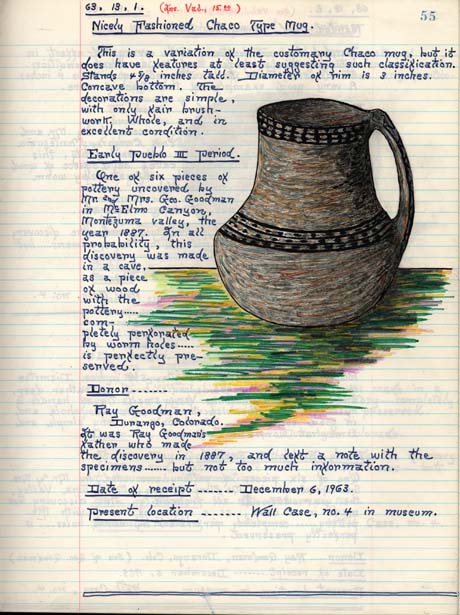 63. 13. 1. (Ins. Val., 15.00)
55
Nicely Fashioned Chaco Type Mug.
This is a variation of the customary Chaco mug, but it
does have features at least suggesting such classification.
Stands 4⅞ inches tall. Diameter of rim is 3 inches.
Concave bottom. The
decorations are simple,
with only fair brush-
work. Whole, and in
excellent condition.
Early Pueblo III Period.
One of six pieces of
pottery uncovered by
Mr. and Mrs. Geo. Goodman
in McElmo Canyon,
Montezuma valley, the
year 1887. In all
probability, this
discovery was made
in a cave,
as a piece
of wood
with the
pottery.....
com-
pletely perforated
by worm holes.....
is perfectly pre-
served.
Donor -------
Ray Goodman,
Durango, Colorado.
It was Ray Goodman's
father who made
the discovery in 1887, and left a note with the
specimens....... but not too much information.
Date of receipt ------- December 6, 1963.
Present location ------- Wall Case, no. 4 in museum.